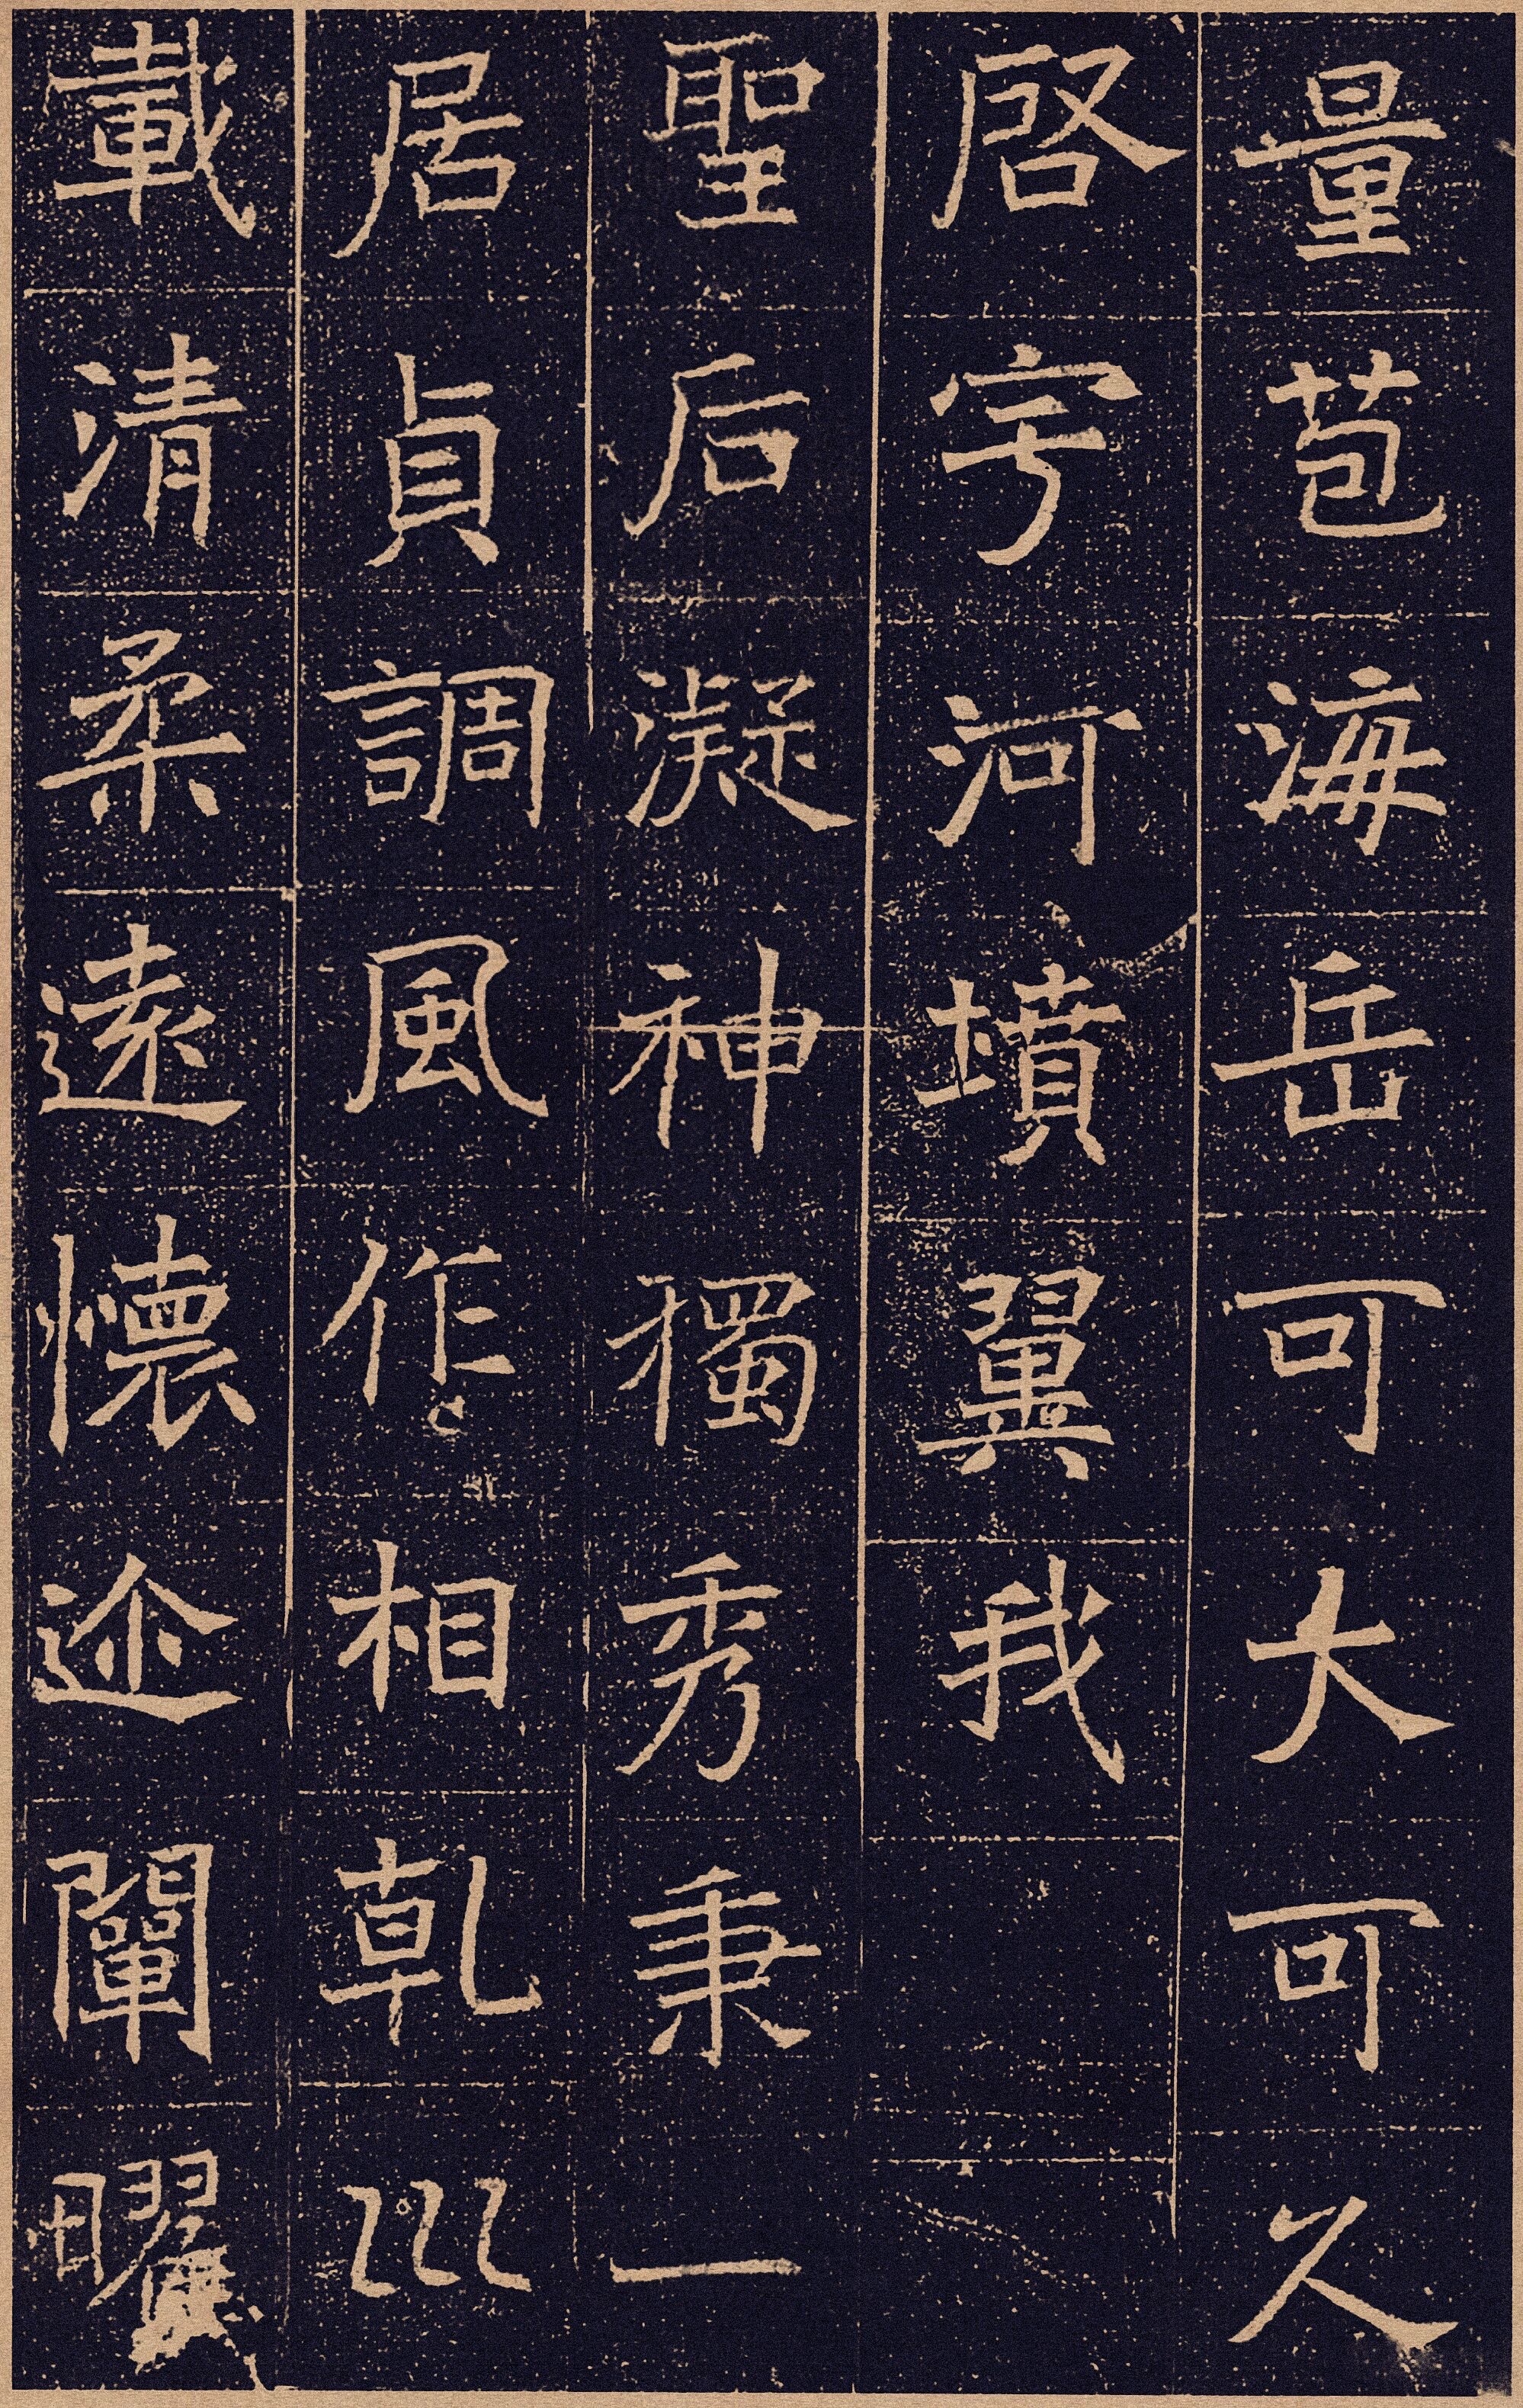 量苞海岳可大可久
啓宇河墳翼我
聖后凝神獨秀秉一
居貞調風作相乾巛
載清柔遠懷迩闡曜